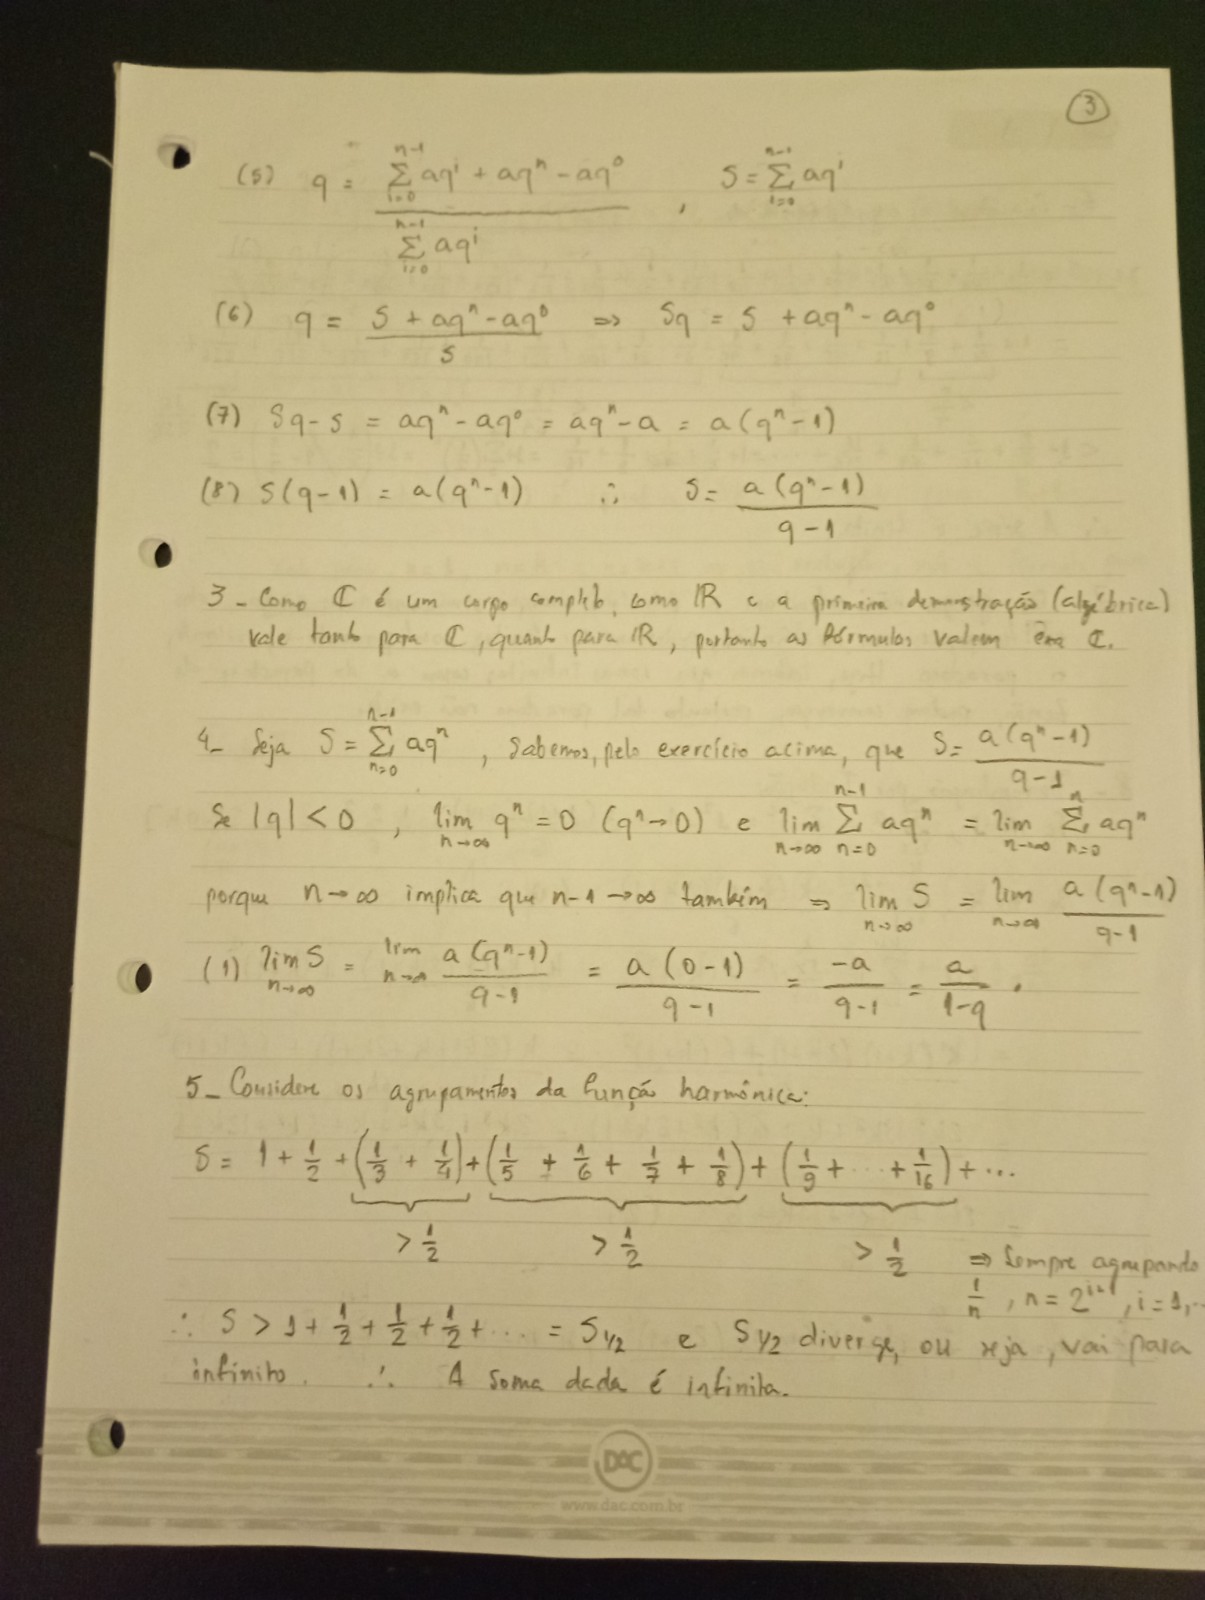 3
(5) q = (∑_{i=0}^{n-1} aq^i + aq^n - aq^0) / (∑_{i=0}^{n-1} aq^i) , S = ∑_{i=0}^{n-1} aq^i
(6) q = (S + aq^n - aq^0) / S ⇒ Sq = S + aq^n - aq^0
(7) Sq - S = aq^n - aq^0 = aq^n - a = a(q^n - 1)
(8) S(q-1) = a(q^n - 1) ∴ S = a(q^n - 1) / (q - 1)
3 - Como ℂ é um corpo completo, como ℝ e a primeira demonstração (algébrica)
vale tanto para ℂ, quanto para ℝ, portanto as fórmulas valem em ℂ.
4 - Seja S = ∑_{n=0}^{n-1} aq^n , Sabemos, pelo exercício acima, que S = a(q^n - 1) / (q - 1)
Se |q| < 0 , lim_{n→∞} q^n = 0 (q^n → 0) e lim_{n→∞} ∑_{n=0}^{n-1} aq^n = lim_{n→∞} ∑_{n=0}^{n} aq^n
porque n→∞ implica que n-1→∞ também ⇒ lim_{n→∞} S = lim_{n→∞} a(q^n - 1) / (q - 1)
(1) lim_{n→∞} S = lim_{n→∞} a(q^n - 1) / (q - 1) = a(0 - 1) / (q - 1) = -a / (q - 1) = a / (1 - q) .
5 - Considere os agrupamentos da função harmônica:
S = 1 + 1/2 + (1/3 + 1/4) + (1/5 + 1/6 + 1/7 + 1/8) + (1/9 + ... + 1/16) + ...
> 1/2 > 1/2 > 1/2 ⇒ Sempre agrupando
1/n , n = 2^{i+1}, i = 1, ..
∴ S > 1 + 1/2 + 1/2 + 1/2 + ... = S_{1/2} e S_{1/2} diverge, ou seja, vai para
infinito. ∴ A soma dada é infinita.
DAC
www.dac.com.br